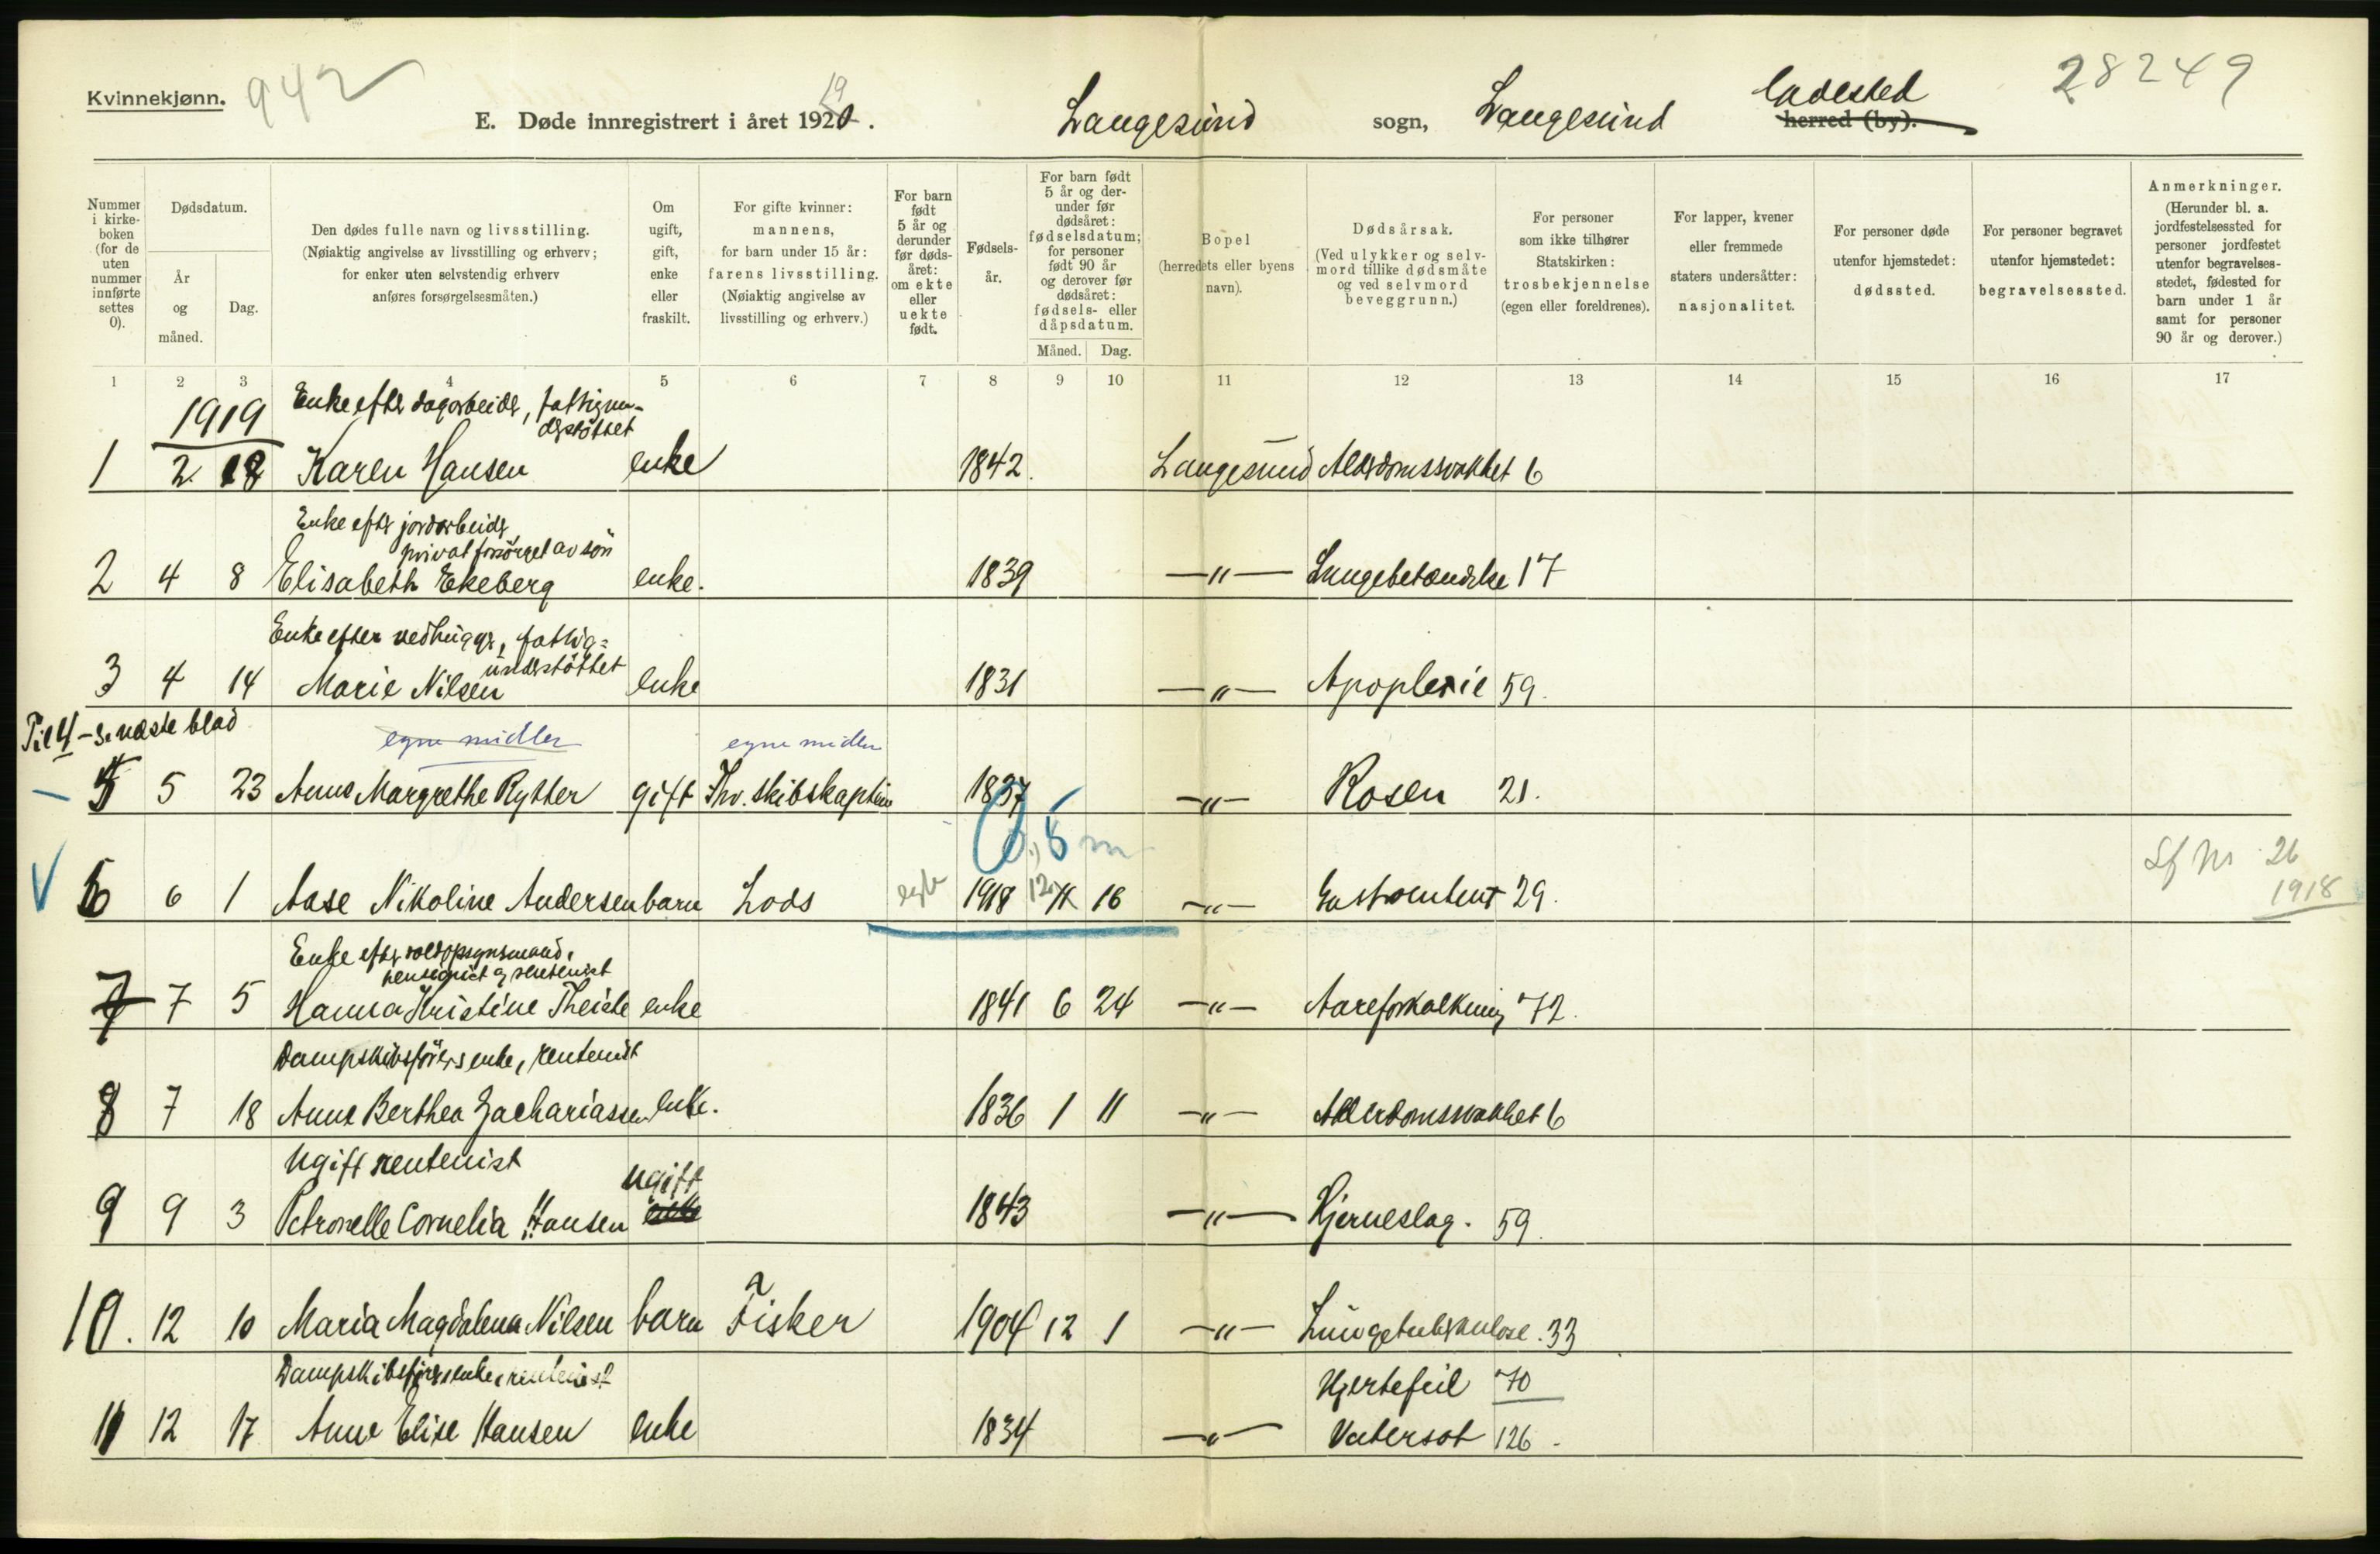 Kvinnekjønn.
942
E. Døde innregistrert i året 1920.
19
Langesund sogn, Langesund ladested
herred (by).
28249
Nummer i kirkeboken (for de uten nummer innførte settes 0).
Dødsdatum.
År og måned.
Dag.
Den dødes fulle navn og livsstilling.
(Nøiaktig angivelse av livsstilling og erhverv;
for enker uten selvstendig erhverv
anføres forsørgelsesmåten.)
Om ugift, gift, enke eller fraskilt.
For gifte kvinner:
mannens,
for barn under 15 år:
farens livsstilling.
(Nøiaktig angivelse av
livsstilling og erhverv.)
For barn født 5 år og derunder før dødsåret: om ekte eller uekte født.
Fødselsår.
For barn født 5 år og derunder før dødsåret: fødselsdatum; for personer født 90 år og derover før dødsåret: fødsels- eller dåpsdatum.
Måned.
Dag.
Bopel
(herredets eller byens
navn).
Dødsårsak.
(Ved ulykker og selvmord tillike dødsmåte og ved selvmord beveggrunn.)
For personer
som ikke tilhører
Statskirken:
trosbekjennelse
(egen eller foreldrenes).
For lapper, kvener
eller fremmede
staters undersåtter:
nasjonalitet.
For personer døde
utenfor hjemstedet:
dødssted.
For personer begravet
utenfor hjemstedet:
begravelsessted.
Anmerkninger.
(Herunder bl. a.
jordfestelsessted for
personer jordfestet
utenfor begravelsesstedet, fødested for
barn under 1 år
samt for personer
90 år og derover.)
1 2 3 4 5 6 7 8 9 10 11 12 13 14 15 16 17
1919
Enke efter dagarbeider, fattigunderstöttet
1 2 18 Karen Hansen enke 1842. Langesund Alderdomssvakhet 6
Enke efter jordarbeider
privat forsörget av sön
2 4 8 Elisabeth Ekeberg enke. 1839 —"— Lungebetændelse 17
Enke efter vedhugger, fattig=
understöttet
3 4 14 Marie Nilsen enke 1831 —"— Apoplexie 59.
Til 4 – se næste blad
egne midler
egne midler
5 5 23 Anne Margrethe Rytter gift Fhv. skibskaptein 1837 —"— Rosen 21.
0,5 m
6 6 1 Aase Nikoline Andersen barn Lods egte 1918 12 16 —"— 29.
Lf Nr 26
1918
Enke efter toldopsynsmand,
pensionist og rentenist
7 7 5 Hanna Kristine Theiste enke 1841 6 24 —"— Aareforkalkning 72.
Dampskibsförers enke, rentenist
8 7 18 Anne Berthea Zachariassen enke. 1836 1 11 —"— Alderdomssvakhet 6
Ugift rentenist
ugift
9 9 3 Petronelle Cornelia Hansen enke 1843 —"— Hjerneslag. 59.
10. 12 10 Maria Magdalena Nilsen barn Fisker 1904 12 1 —"— Lungetuberkulose. 33
Dampskibsförers enke, rentenist
Hjertefeil 70
11 12 17 Anne Elise Hansen enke 1834 —"— Vatersot 126.